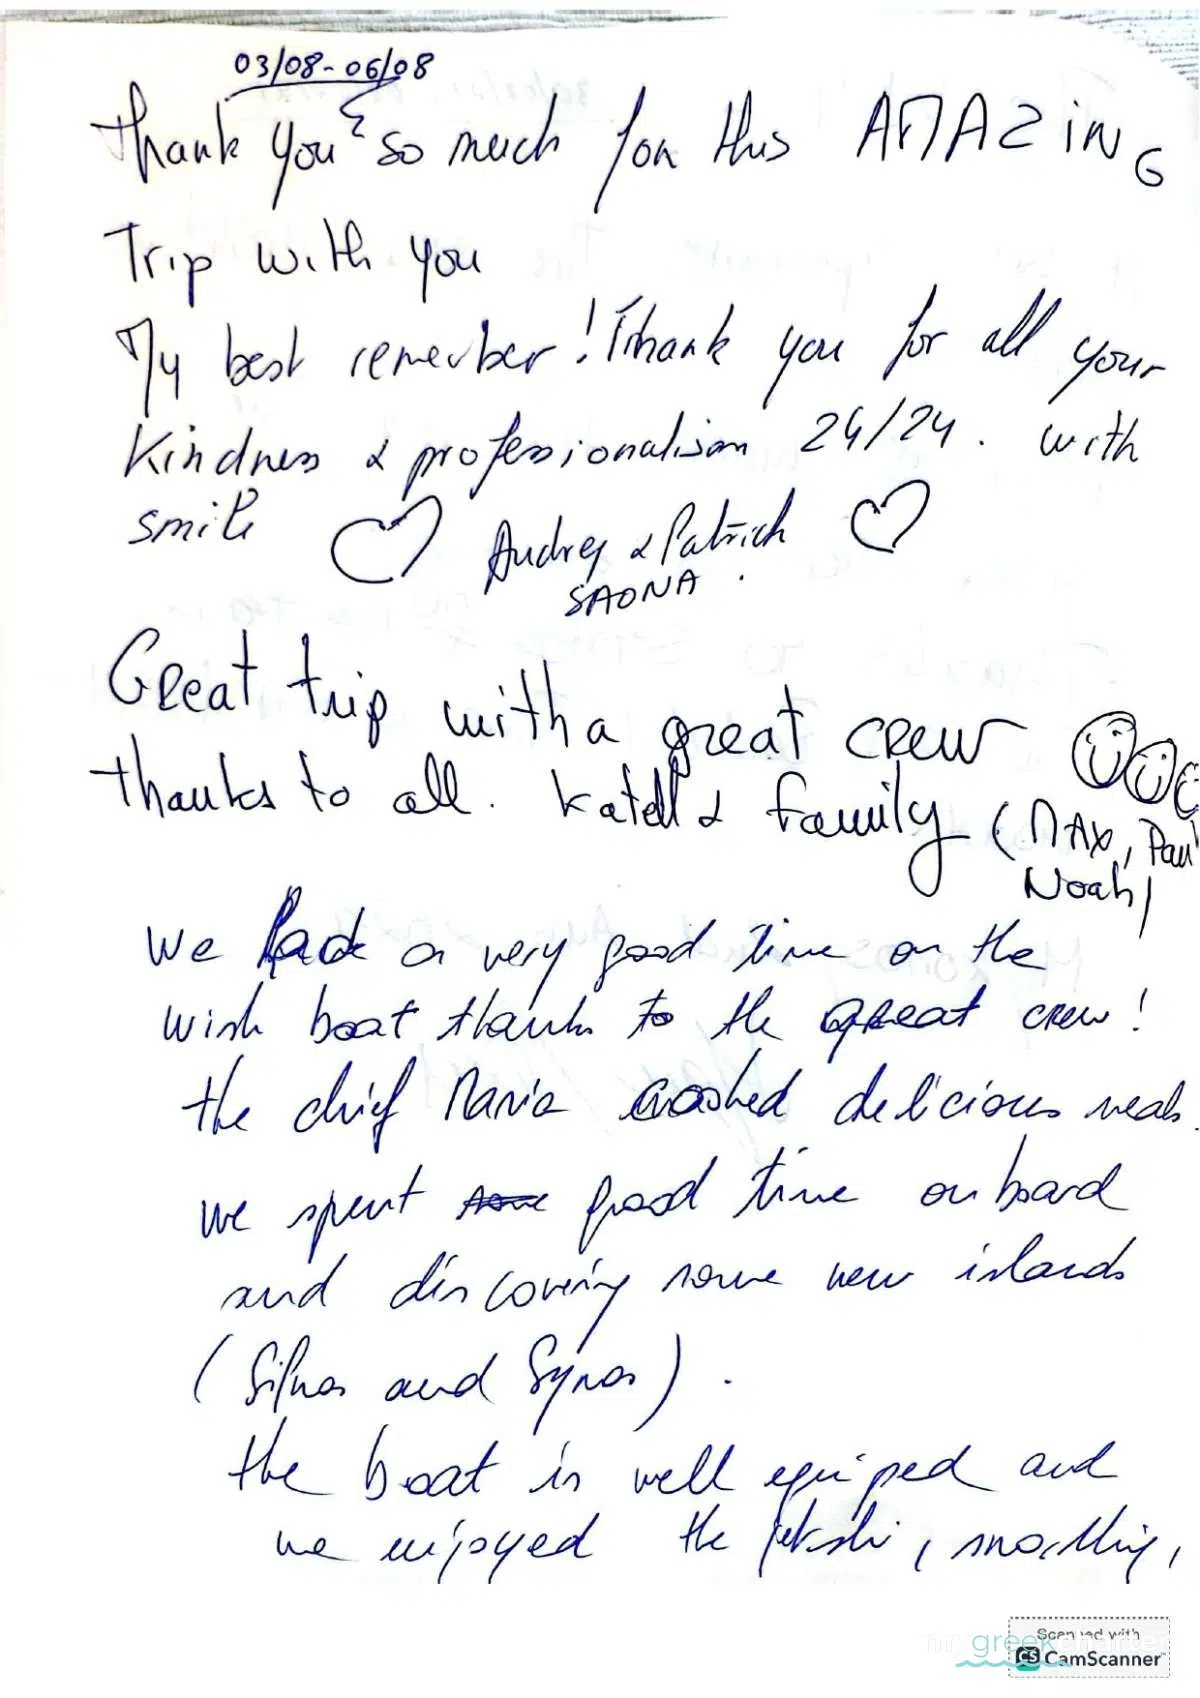 03/08-06/08
Thank you so much for this AMAZING
Trip with you
My best remember! Thank you for all your
kindness & professionalism 24/24. with
smile Audrey & Patrick
SAONA.
Great trip with a great crew
thanks to all. Katell & family (MAX, Paul
Noah)
We had a very good time on the
wish boat thanks to the great crew!
the chief Maria cooshed delicious meals.
we spent good time on board
and discovering some new islands
(Sifnos and Syros).
the boat is well equiped and
we enjoyed the jetski,
Scanned with
greekcharter
CS CamScanner